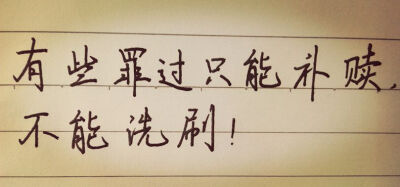 有些罪过只能补赎,
不能洗刷!